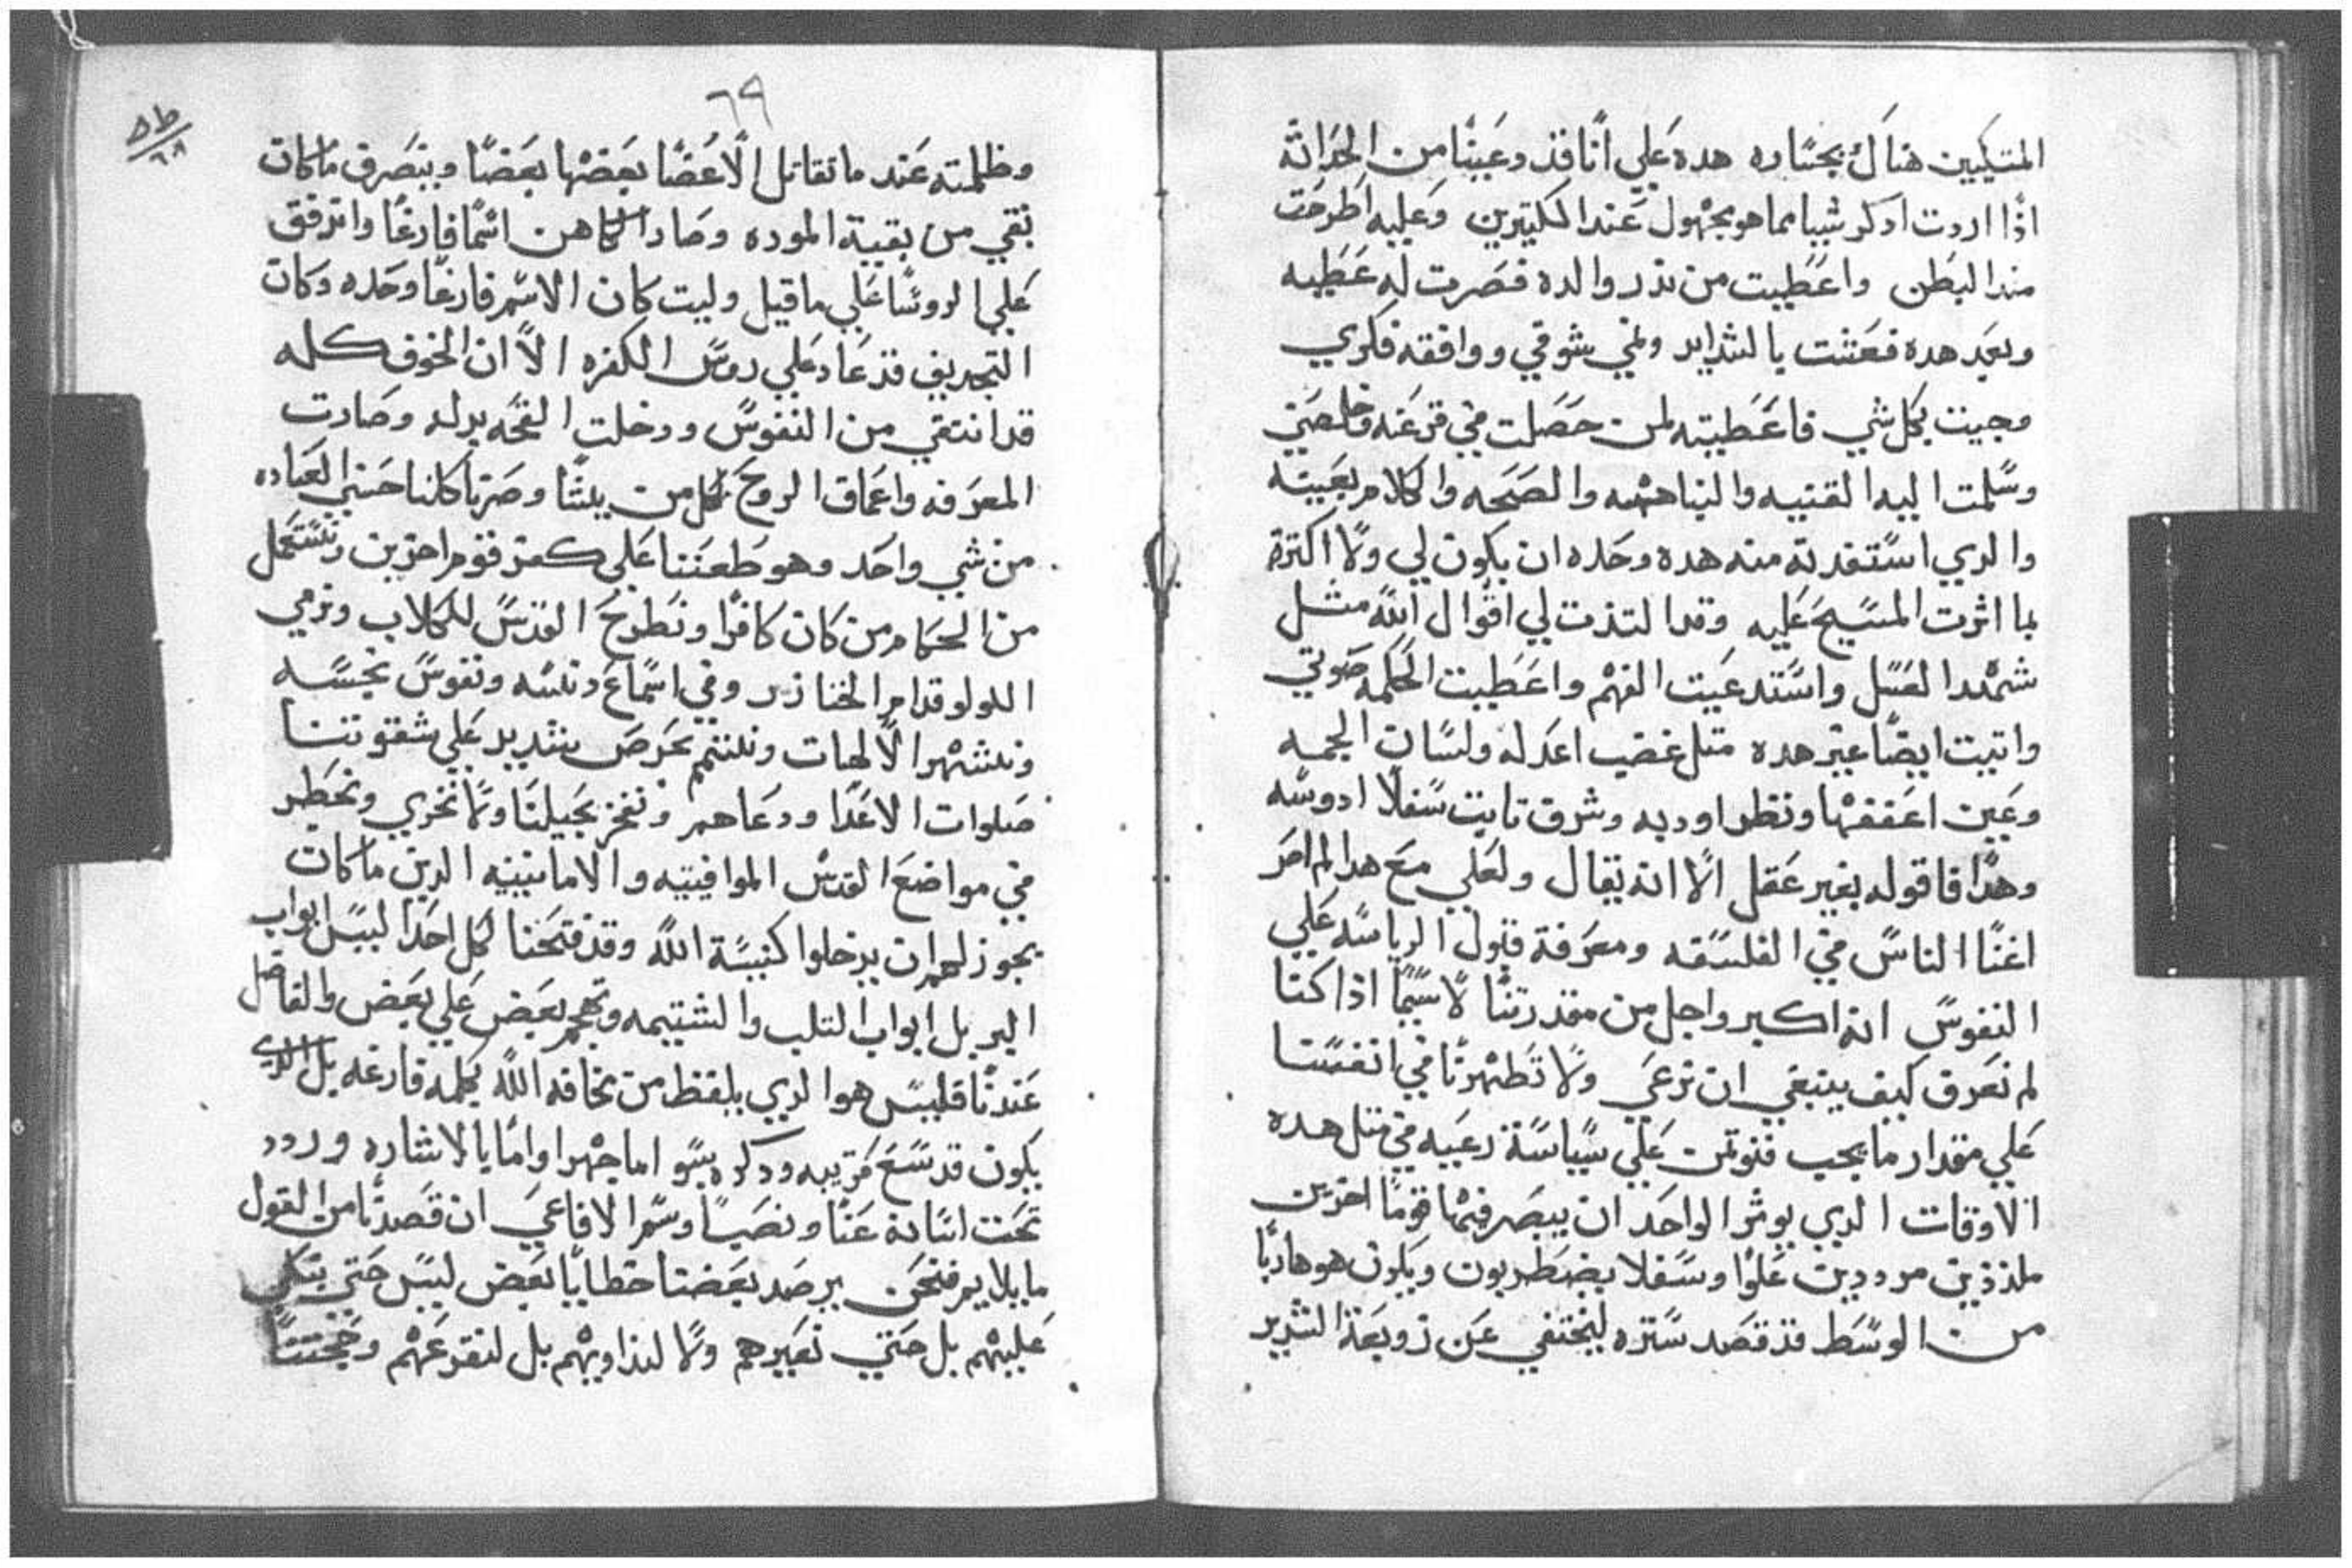 المتيكيين هناك بجساره هده علي أنا قد دعينا من الحداثة
اذا اردت ادكر شيا مما هو مجهول عند الكتيرين وعليه اطرحت
مند البطن واعطيت من ندر والده فصرت له عطيه
وبعد هده فعتنت بالشدايد ونمي شوقي ووافقه فكري
وجيت بكل شي فاعطيته لمن حصلت في قرعته وخلصني
وسلمت اليه القنيه والنباهه والصحه والكلام بعينه
والدي استفدته منه هده وحده ان يكون لي ولا اكترة
بما اثرت المسيح عليه وقد التذت لي اقوال الله مثل
شهد العسل واستدعيت الفهم واعطيت الحكمه صوتي
واتيت ايضا عير هده متل غضب اعدله ولسان الجمه
وعين اعففها ونظر اوديه وشرف تابت سفلا ادوسه
وهدا فاقوله بغير عقل الا انه يقال ولعلي مع هدا لم اصر
اغنا الناس في الفلسفه ومعرفة قبول الرياسه علي
النفوس انه اكبر واجل من مقدرتنا لا سيما اذا كنا
لم نعرف كيف ينبغي ان نرعي ولا تطهرنا في انفسنا
علي مقدار ما يجب فنوتمن علي سياسة رعيه في متل هده
الاوقات الدي يوثر الواحد ان يبصر فيها قوما اخرين
ملذذين مرددين علوا وسفلا يضطربون ويكون هو هاربا
من الوسط قد قصد ستره ليختفي عن زوبعة الشدير
٦٩
وظلمته عند ما تقاتل الاعضا بعضها بعضا وينصرف ما كان
بقي من بقية الموده وصار الكاهن اسما فارغا واندفق
علي الروسا علي ما قيل وليت كان الاسم فارغا وحده وكان
التجديف قد عاد علي روس الكفره الا ان الخوف كله
قد انتفي من النفوس ودخلت القحه بدله وصارت
المعرفه واعماق الروح لكل من يشا وصرنا كلنا حسني العباده
من شي واحد وهو طعننا علي كفر قوم اخرين ونستعمل
من الحكام من كان كافرا ونطرح القدس للكلاب ونرمي
اللولو قدام الخنازير وفي اسماع دنسه ونفوس نجسه
ونشهر الالهات ونلتم بحرص شديد علي شقوتنا
صلوات الاعدا ودعاهم ونفخر بجيلنا ولا نخزي ونخطر
في مواضع القدس الموافيتيه والامانيتيه الدين ما كان
يجوز لهم ان يدخلوا كنيسة الله وقد فتحنا لكل احد ليس ابواب
البر بل ابواب التلب والشتيمه وتهجم بعض علي بعض والفاضل
عندنا فليس هو الدي يلفظ من مخافه الله بكلمه فارغه بل الدي
يكون قد سمع قريبه ودكره بسو اما جهرا واما بالاشاره وردد
تحت لسانه عنا ونصبا وسم الافاعي ان قصدنا من القول
ما يلايم فنحن يرصد بعضنا خطايا بعض ليس حتي نبكي
عليهم بل حتي نعيرهم ولا لنداويهم بل لنقرعهم وحجتنا